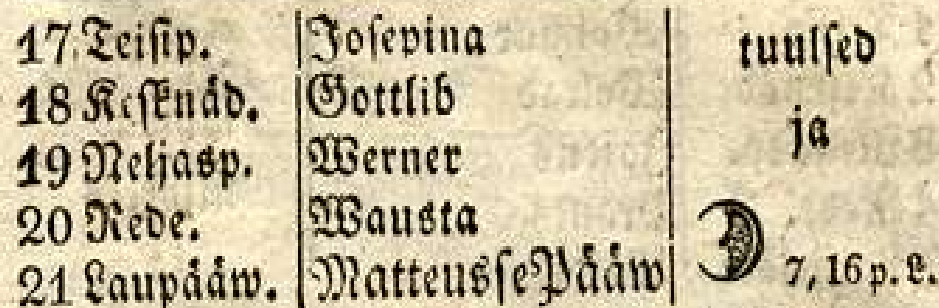 17 Teisip. Josepina tuulsed
18 Keſknäd. Gottlib ja
19 Neljasp. Werner
20 Rede. Wausta
21 Laupääw. MatteusſePääw 7, 16 p. L.